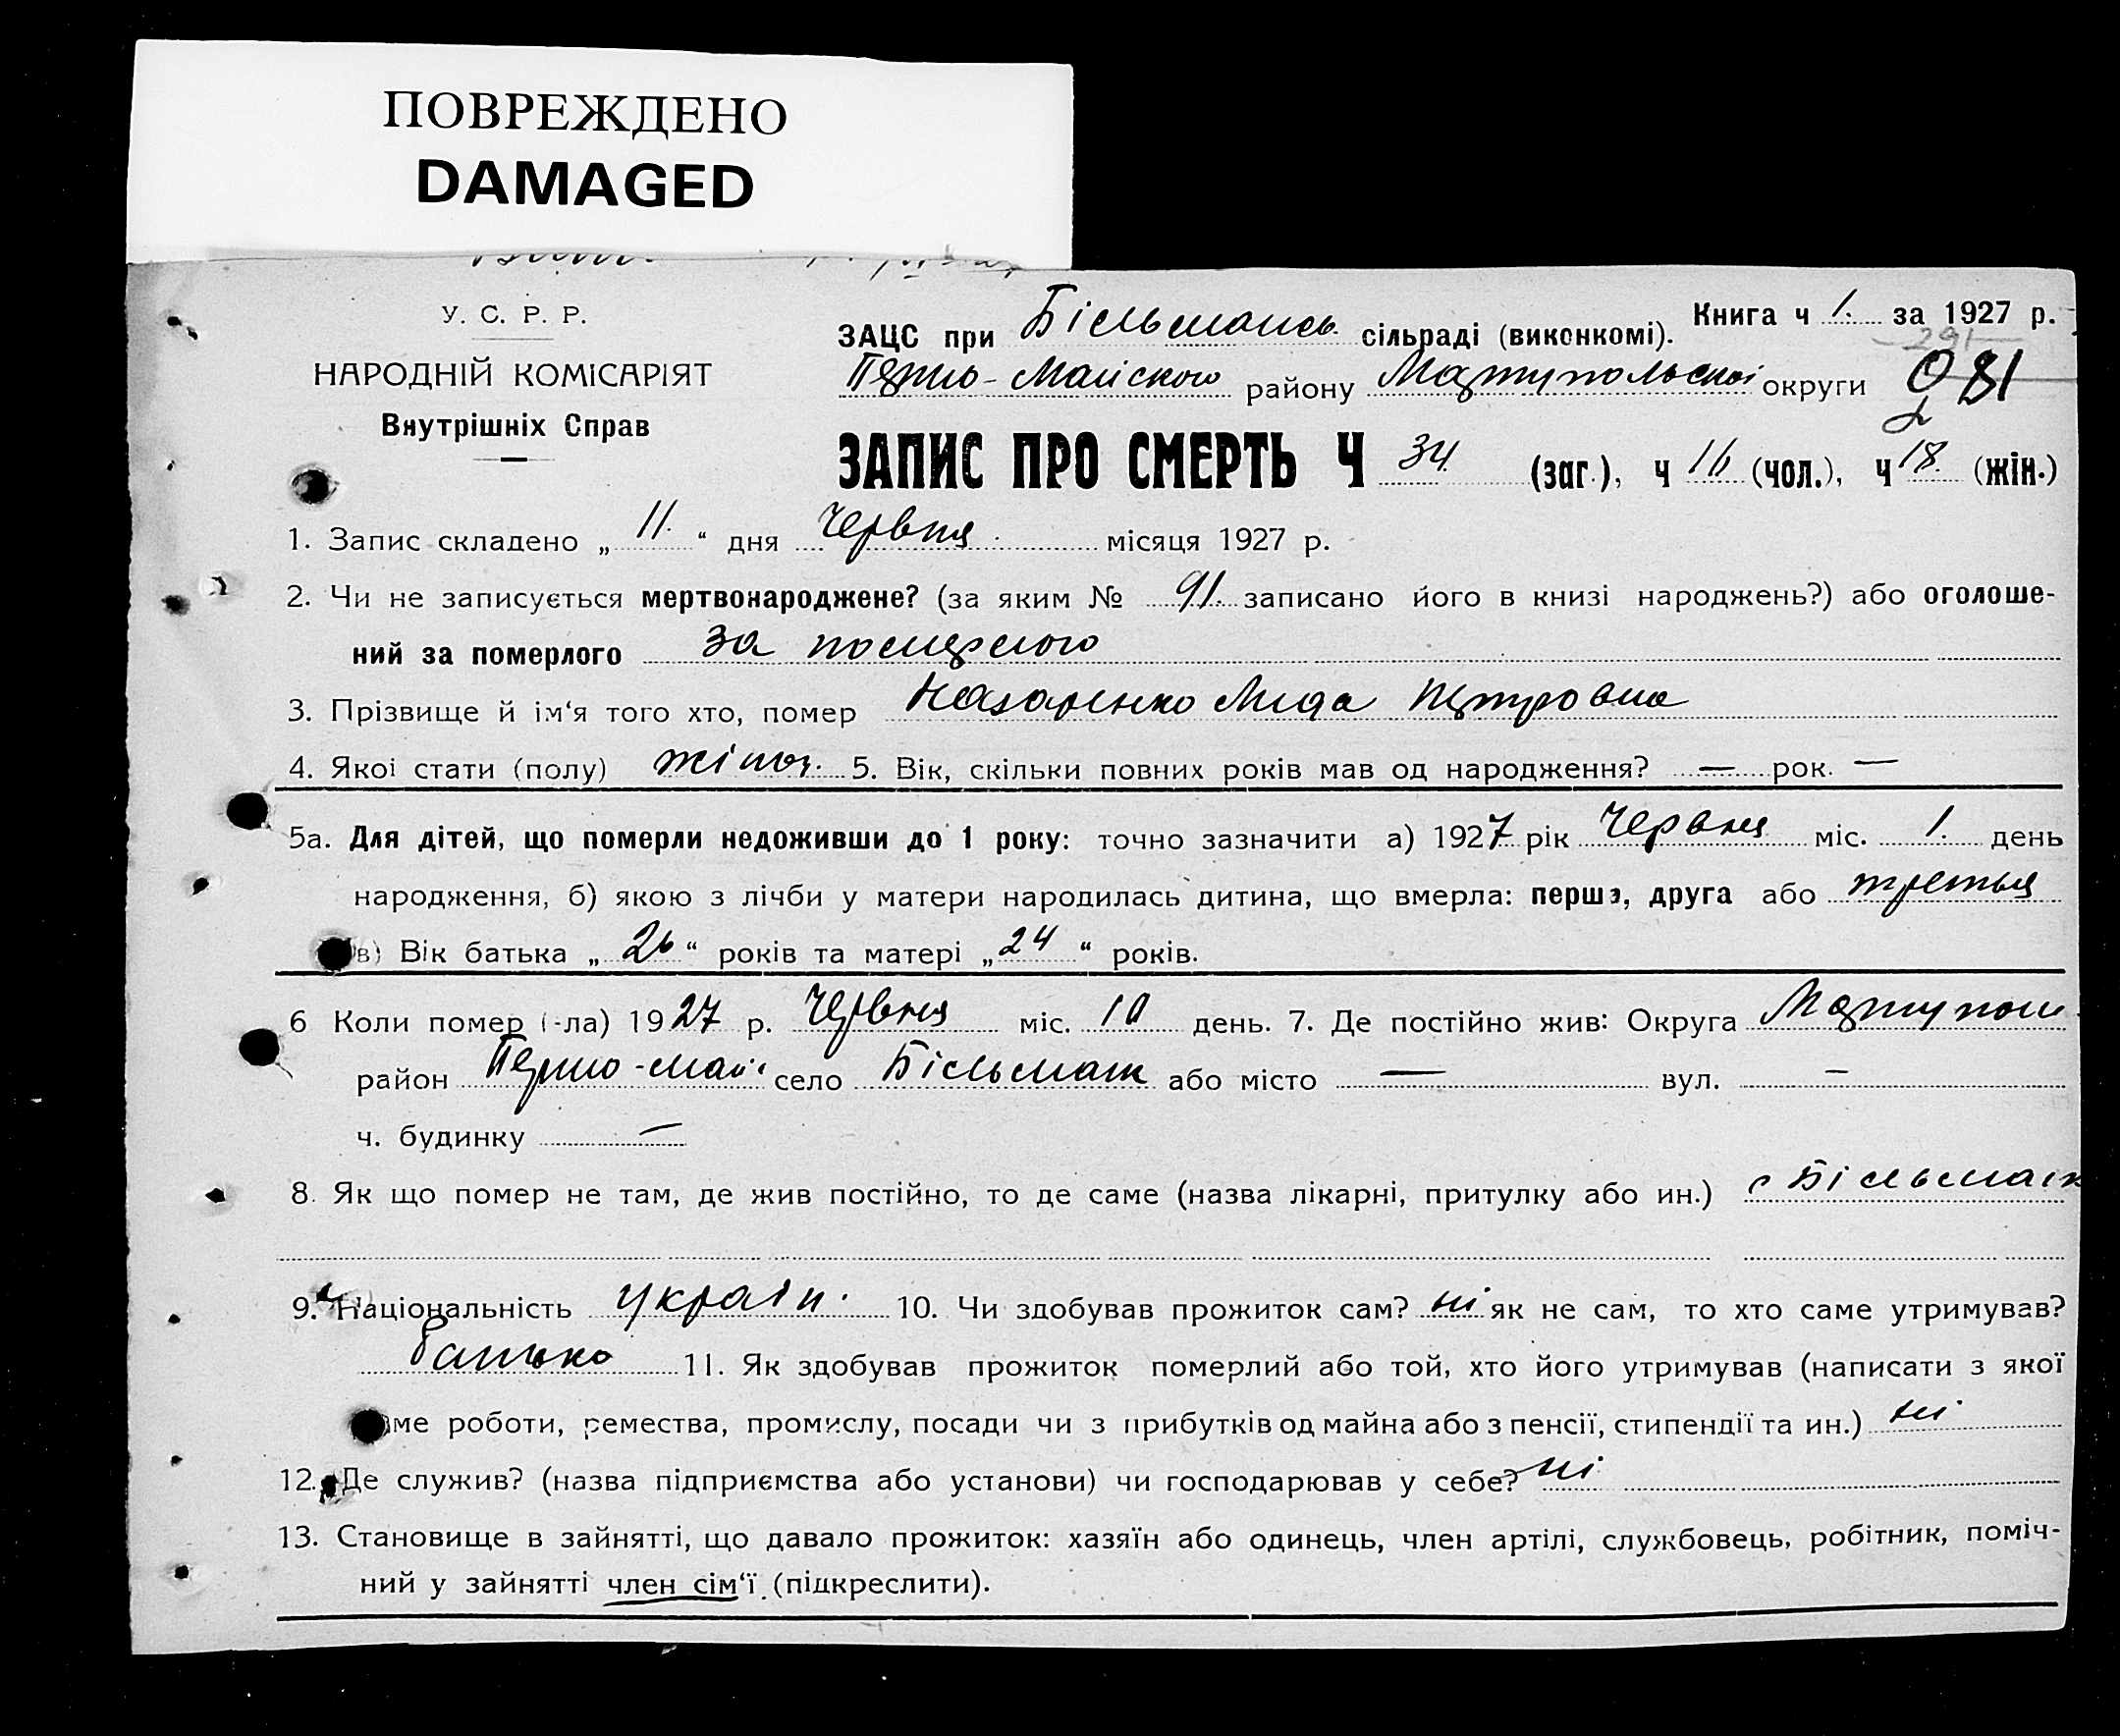 ПОВРЕЖДЕНО
DAMAGED
У. С. Р. Р.
НАРОДНІЙ КОМІСАРІЯТ
Внутрішніх Справ
Книга ч 1. за 1927 р.
291
ЗАЦС при Більмансь. сільраді (виконкомі).
Першо-Майского району Маріупольської округи
ЗАПИС ПРО СМЕРТЬ Ч 34. (заг.), ч 16 (чол.), ч 18. (жін.)
1. Запис складено „ 11. “ дня Червня місяця 1927 р.
2. Чи не записується мертвонароджене? (за яким № 91. записано його в книзі народжень?) або оголоше-
ний за померлого за померлого
3. Прізвище й ім‘я того хто, помер Назаренко Лида Петровна
4. Якоі стати (полу) жіноч. 5. Вік, скільки повних років мав од народження? — рок. —
5а. Для дітей, що померли недоживши до 1 року: точно зазначити а) 1927 рік Червня міс. 1. день
народження, б) якою з лічби у матери народилась дитина, що вмерла: перша, друга або третья
в) Вік батька „ 26 “ років та матері „ 24 “ років.
6 Коли помер (-ла) 1927 р. Червня міс. 10 день. 7. Де постійно жив: Округа Маріупол.
район Першо-май. село Більманк або місто — вул. —
ч. будинку —
8. Як що помер не там, де жив постійно, то де саме (назва лікарні, притулку або ин.) с Більманк
9. Національність Україн. 10. Чи здобував прожиток сам? ні як не сам, то хто саме утримував?
батько 11. Як здобував прожиток померлий або той, хто його утримував (написати з якої
ме роботи, ремества, промислу, посади чи з прибутків од майна або з пенсії, стипендії та ин.) ні
12. Де служив? (назва підприємства або установи) чи господарював у себе? ні
13. Становище в зайнятті, що давало прожиток: хазяїн або одинець, член артілі, службовець, робітник, поміч-
ний у зайнятті член сім‘ї (підкреслити).